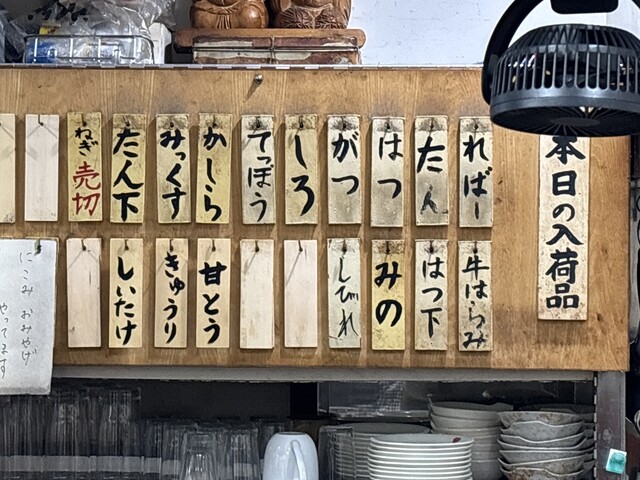 本日の入荷品
ればー
たん
はつ
がつ
しろ
てっぽう
かしら
みっくす
たん下
ねぎ 売切
牛はらみ
はつ下
みの
しびれ
甘とう
きゅうり
しいたけ
にこみ おみやげ
やってます